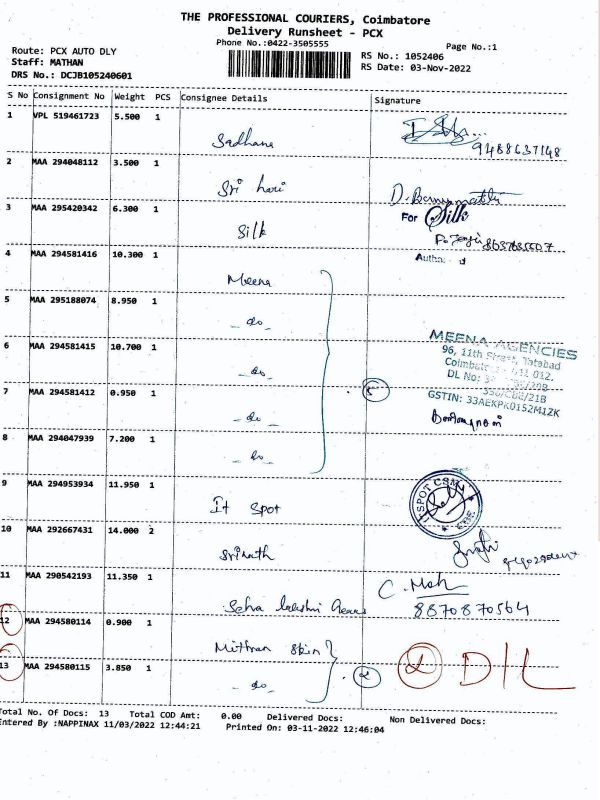 THE PROFESSIONAL COURIERS, Coimbatore
Delivery Runsheet - PCX
Phone No.:0422-3505555
Page No.:1
Route: PCX AUTO DLY
Staff: MATHAN
DRS No.: DCJB105240601
RS No.: 1052406
RS Date: 03-Nov-2022
S No Consignment No Weight PCS Consignee Details Signature
1 VPL 519461723 5.500 1 Sadhana
9488637148
2 MAA 294048112 3.500 1 Sri hari
3 MAA 295420342 6.300 1 Silk
For Silk
4 MAA 294581416 10.300 1 Meena
5 MAA 295188074 8.950 1 - do -
6 MAA 294581415 10.700 1 - do -
7 MAA 294581412 0.950 1 - do -
8 MAA 294047939 7.200 1 - do -
5
MEENA AGENCIES
96, 11th Street, Tatabad
GSTIN: 33AEKPK0152M1ZK
9 MAA 294953934 11.950 1 It Spot
10 MAA 292667431 14.000 2 Srinath
11 MAA 290542193 11.350 1
8870870564
12 MAA 294580114 0.900 1 Mithran Skin
13 MAA 294580115 3.850 1 - do -
2
2 D/L
Total No. Of Docs: 13 Total COD Amt: 0.00 Delivered Docs: Non Delivered Docs:
Entered By :NAPPINAX 11/03/2022 12:44:21 Printed On: 03-11-2022 12:46:04